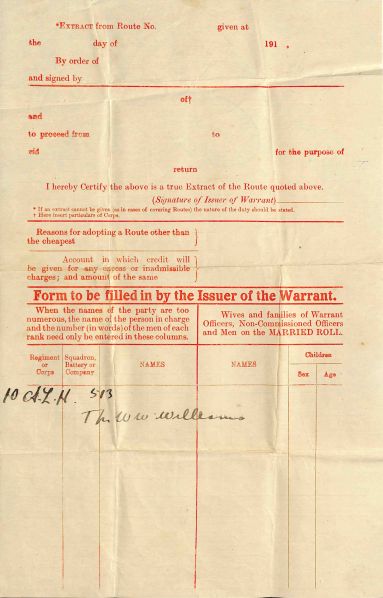 *EXTRACT from Route No. given at
the day of 191 .
By order of
and signed by
of†
and
to proceed from to
viâ for the purpose of
return
I hereby Certify the above is a true Extract of the Route quoted above.
(Signature of Issuer of Warrant)
* If an extract cannot be given (as in cases of covering Routes) the nature of the duty should be stated.
† Here insert particulars of Corps.
Reasons for adopting a Route other than
the cheapest
Account in which credit will
be given for any excess or inadmissible
charges; and amount of the same
Form to be filled in by the Issuer of the Warrant.
When the names of the party are too
numerous, the name of the person in charge
and the number (in words) of the men of each
rank need only be entered in these columns.
Wives and families of Warrant
Officers, Non-Commissioned Officers
and Men on the MARRIED ROLL.
Regiment
or
Corps
Squadron,
Battery or
Company
NAMES
NAMES
Children
Sex Age
10 A.L.H. 513
Tpr W W Williams